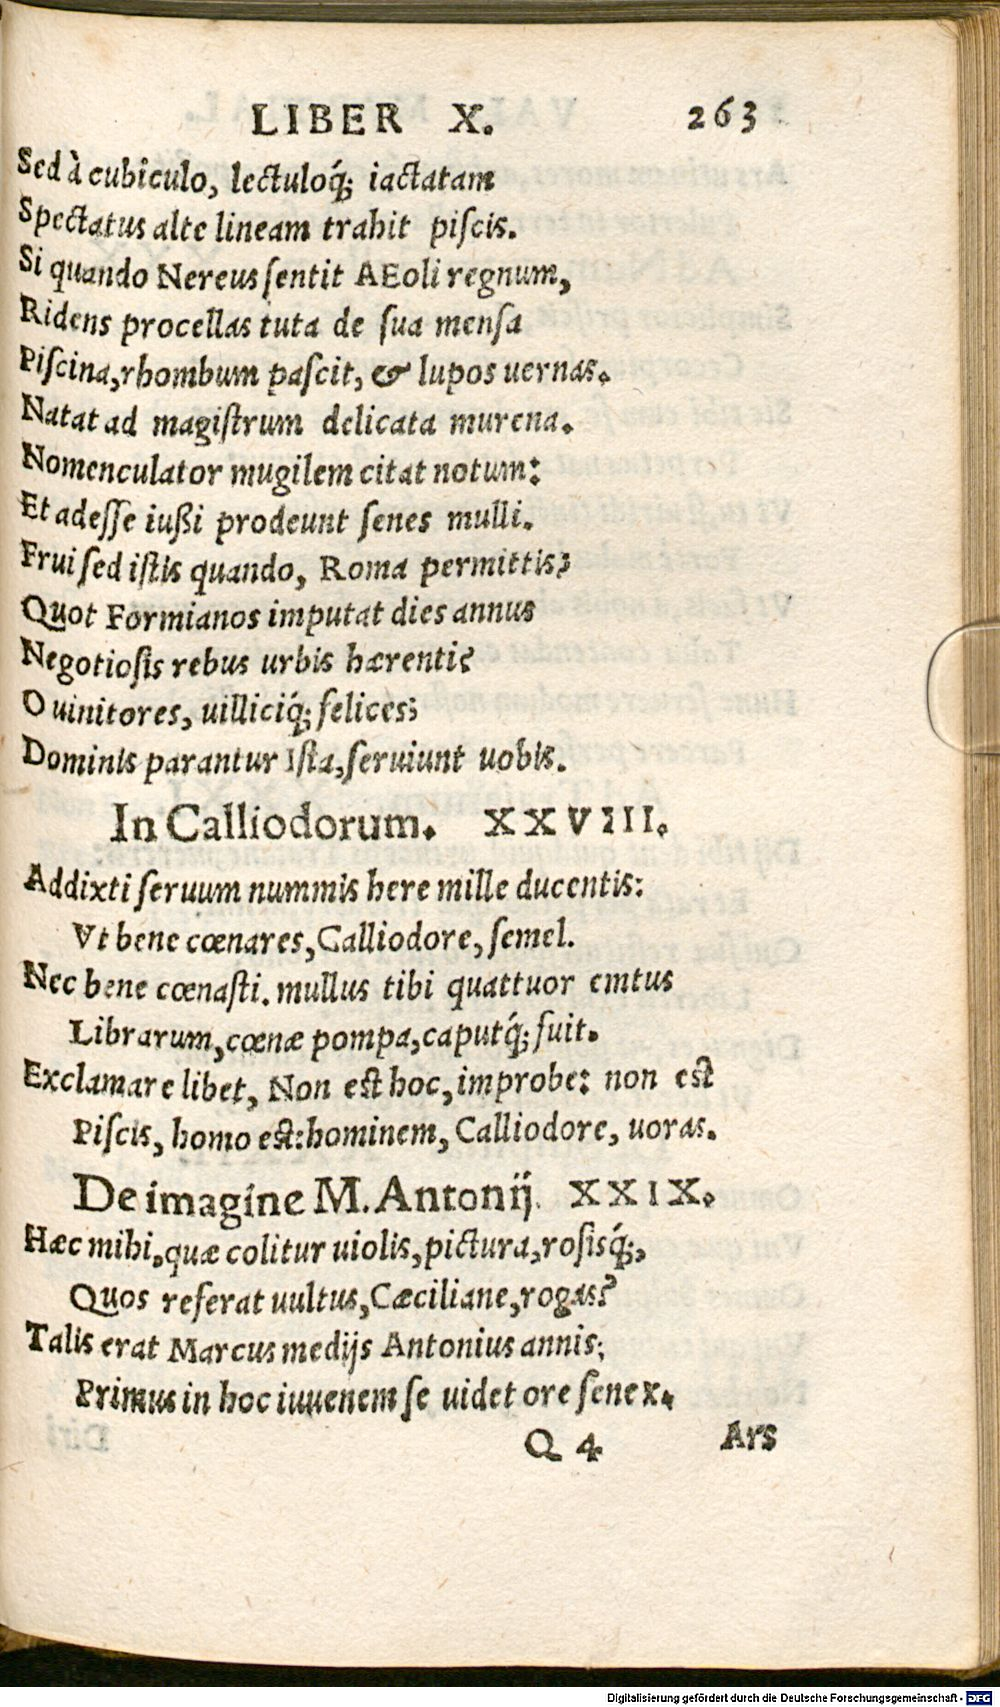 LIBER X. 263
Sed à cubiculo, lectuloq́; iactatam
Spectatus alte lineam trahit piſcis.
Si quando Nereus ſentit AEoli regnum,
Ridens procellas tuta de ſua menſa
Piſcina, rhombum paſcit, & lupos uernas.
Natat ad magiſtrum delicata murena.
Nomenculator mugilem citat notum:
Et adeſſe iußi prodeunt ſenes mulli.
Frui ſed iſtis quando, Roma permittis?
Quot Formianos imputat dies annus
Negotioſis rebus urbis hærenti?
O uinitores, uilliciq́; felices;
Dominis parantur Iſta, ſeruiunt uobis.
In Calliodorum. XXVIII.
Addixti ſeruum nummis here mille ducentis:
Vt bene cœnares, Calliodore, ſemel.
Nec bene cœnaſti. mullus tibi quattuor emtus
Librarum, cœnæ pompa, caputq́; fuit.
Exclamare libet, Non eſt hoc, improbe: non eſt
Piſcis, homo eſt: hominem, Calliodore, uoras.
De imagine M. Antonij. XXIX.
Hæc mihi, quæ colitur uiolis, pictura, roſisq́;,
Quos referat uultus, Cæciliane, rogas?
Talis erat Marcus medijs Antonius annis;
Primus in hoc iuuenem ſe uidet ore ſenex.
Q 4 Ars
Digitalisierung gefördert durch die Deutsche Forschungsgemeinschaft - DFG